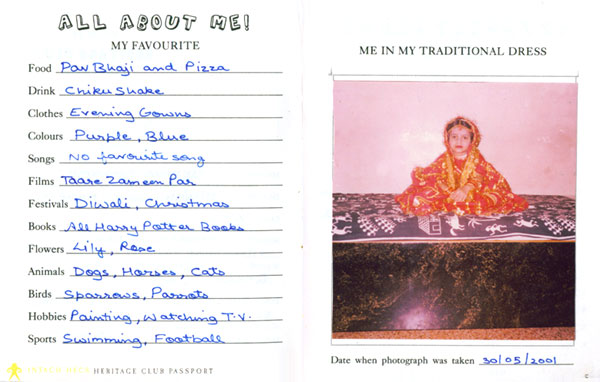 ALL ABOUT ME!
MY FAVOURITE
Food Pav Bhaji and Pizza
Drink Chiku Shake
Clothes Evening Gowns
Colours Purple, Blue
Songs No favourite song
Films Taare Zameen Par
Festivals Diwali, Christmas
Books All Harry Potter Books
Flowers Lily, Rose
Animals Dogs, Horses, Cats
Birds Sparrows, Parrots
Hobbies Painting, Watching T.V.
Sports Swimming, Football
HERITAGE CLUB PASSPORT
ME IN MY TRADITIONAL DRESS
Date when photograph was taken 30/05/2001